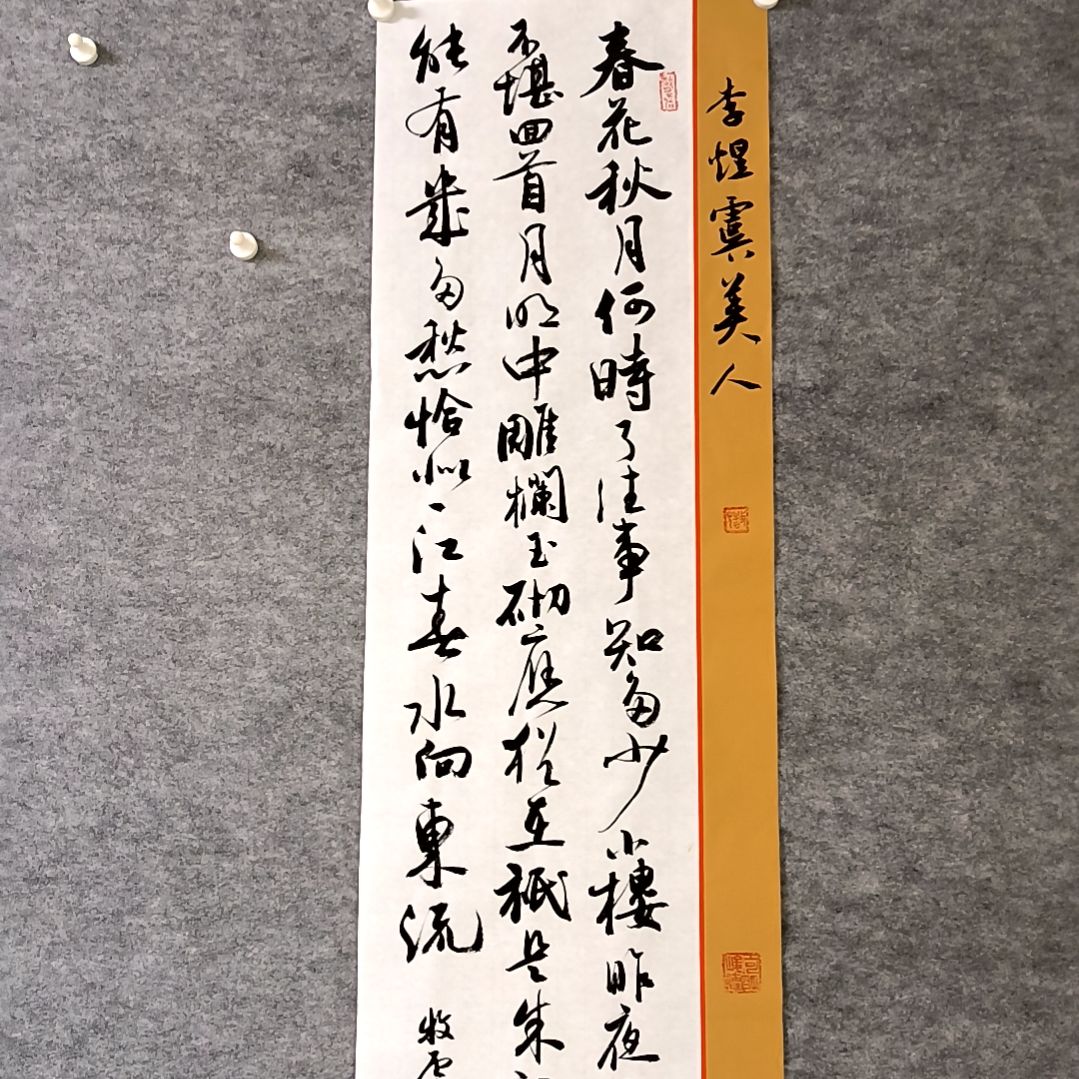 李煜虞美人
春花秋月何時了往事知多少小樓昨夜
不堪回首月明中雕欄玉砌應猶在祇是朱
能有幾多愁恰似一江春水向東流